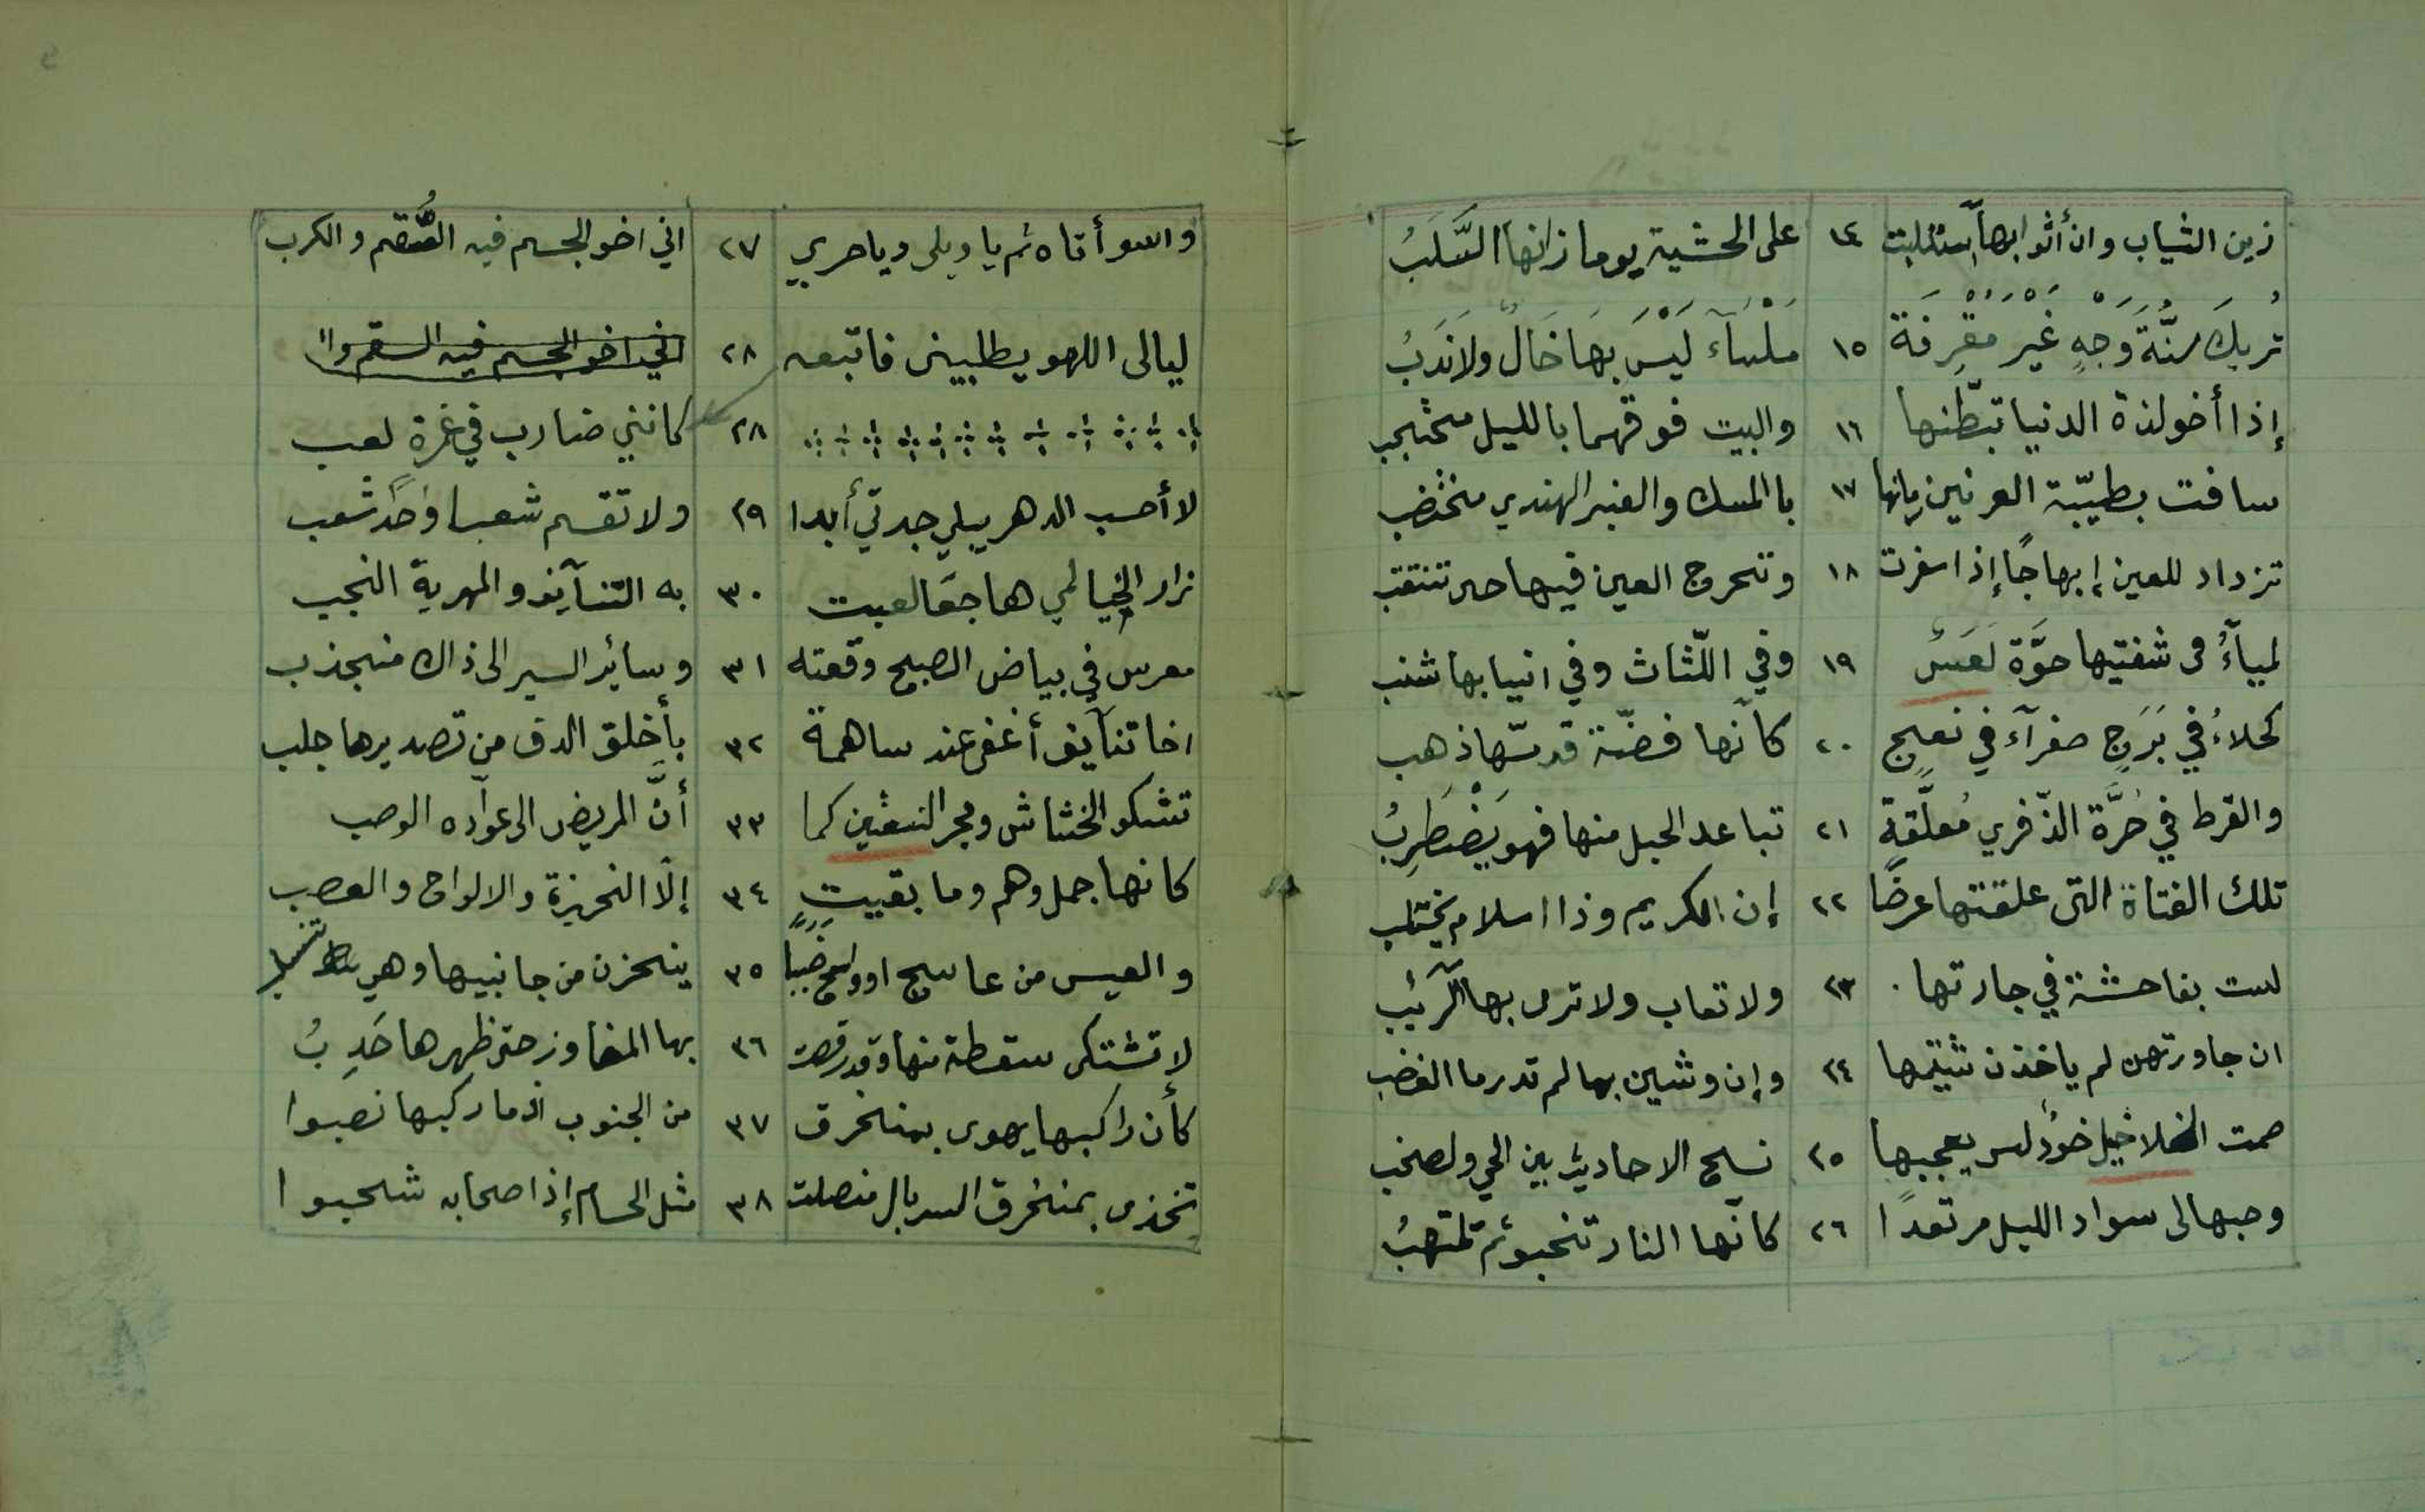 زين الثياب وان أثوابها استلبت ١٤ على الحشية يوما زانها السَّلَبُ
تُرِيكَ سُنَّةَ وَجْهٍ غَيْرَ مُقْرِفَة ١٥ مَلْسَآء لَيْسَ بِهَا خَالٌ ولا نَدَبُ
إذا أخو لذة الدنيا تبطّنها ١٦ والبيت فوقهما بالليل محتجب
سافت بطيّبة العرنين مارنها ١٧ بالمسك والعنبر الهندي مختضب
تزداد للعين إبهاجًا إذا سفرت ١٨ وتحرج العين فيها حين تنتقب
لمياَءُ فى شفتيها حوَّة لَعَسُ ١٩ وفي اللّثاث وفي انيابها شنب
كحلاءُ في بَرَجٍ صفرآء في نعجٍ ٢٠ كانّها فضّة قد مسّها ذهب
والقرط في حُرَّة الذّفري مُعلَّقةٍ ٢١ تباعد الحبل منها فهو يَضْطَرِبُ
تلك الفتاة التى علقتها عرضًا ٢٢ إن الكريم وذا اسلام يختلب
لىست بفاحشة في جارتها ٢٣ ولا تعاب ولا ترمى بها الرّيَب
ان جاورتهن لم ياخذن شيمها ٢٤ وإن وشين بها لم تدر ما الغضب
صمت الخلاخيل خوُد ليس يعجبها ٢٥ نسج الاحاديث بين الحي ولصخب
وحبها لى سواد الليل مرتعدًا ٢٦ كانّها النار تخبو ثم تلتهبُ
واسوأتاه ثم يا ويلى ويا حربي ٢٧ اني اخو الجسم فيه السُّقم والكرب
ليالى اللهو يطبيني فاتبعه ٢٨ اني اخو الجسم فيه السقم وا
٢٨ كانني ضارب في غمرة لعب
لا أحسب الدهر يبلي جدتي أبدا ٢٩ ولا تقسم شعبا واحدًا شعب
زار الخيال لمي هاجعَا لعبت ٣٠ به التنآيف والمهرية النجب
معرس في بياض الصبح وقعته ٣١ وسائر السير الى ذاك منجذب
اخا تنآيف أغفى عند ساهمة ٣٢ بأخلق الدف من تصديرها جلب
تشكو الخشاش ومجر النسعَين كما ٣٣ أنَّ المريض الى عوّاده الوصب
كانها جمل وهم وما بقيت ٣٤ إلّا النحيزة والالواح والعصب
والعيس من عاسج او واسج خَبَبًا ٣٥ ينحزن من جانبيها وهي تنسلب
لا تشتكى سقطة منها وقد رقصت ٣٦ بها المفاوز حتى ظهرها حَدِبُ
كأن راكبها يهوى بمنخرق ٣٧ من الجنوب اذا ما ركبها نصبوا
تخذى بمنخرق السربال منصلت ٣٨ مثل الحسام إذا صحابه شحبوا